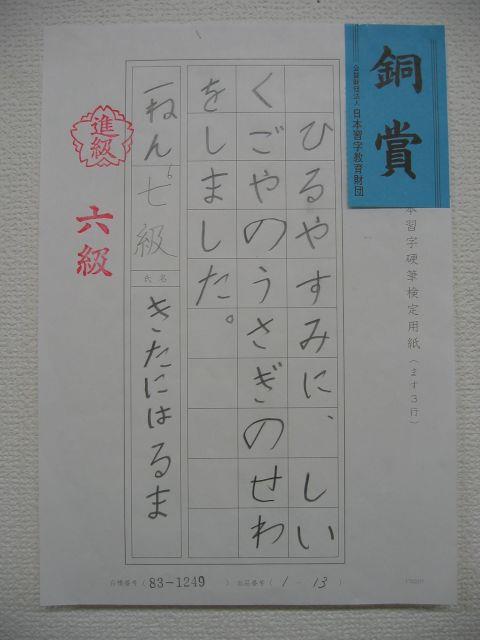 銅賞
公益財団法人 日本習字教育財団
本習字硬筆検定用紙(ます3行)
ひるやすみに、しい
くごやのうさぎのせわ
をしました。
一ねん七級
6
氏名
きたにはるま
進級
六級
(83-1249) 出品番号(1-13)